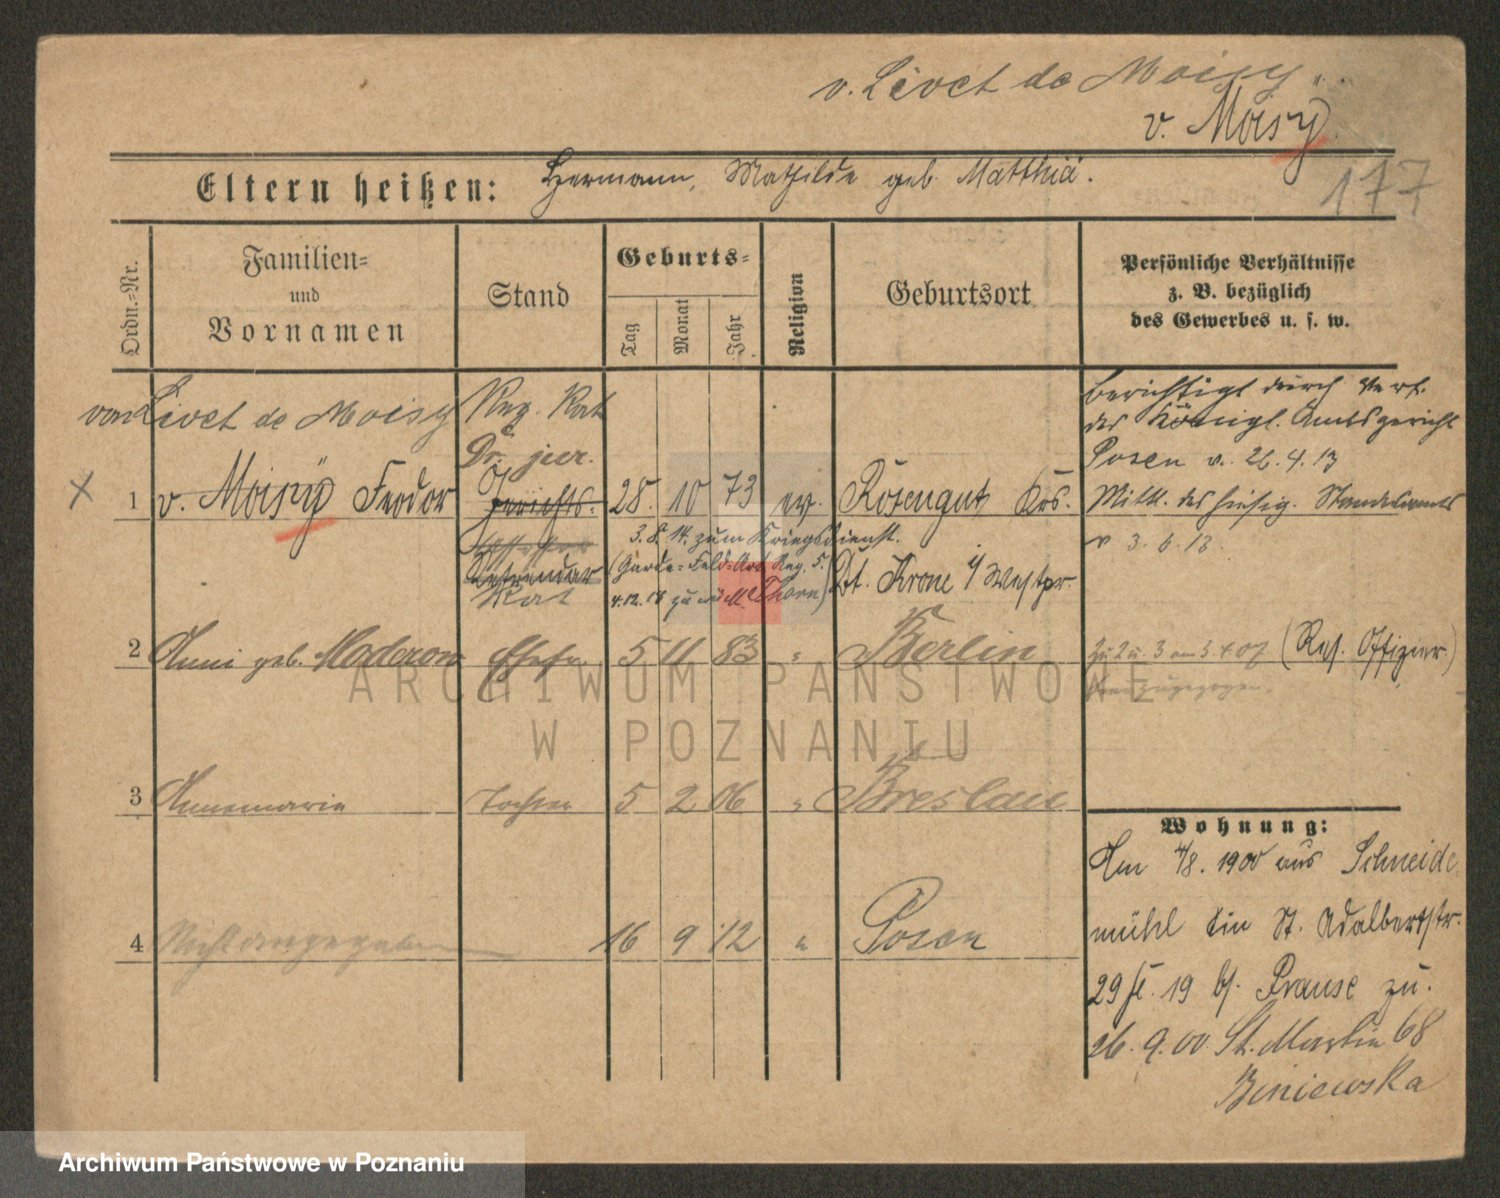 v. Livet de Moisy
v. Moisy.
177
Eltern heißen: Hermann, Mathilde geb. Matthiä.
Ordn.-Nr.
Familien- und Vornamen
Stand
Geburts-
Tag
Monat
Jahr
Religion
Geburtsort
Persönliche Verhältnisse
z. B. bezüglich
des Gewerbes u. s. w.
von Livet de Moisy Reg. Rat
Dr. jur.
berichtigt durch Verf.
des Königl. Amtsgericht
Posen v. 26.4.13
X 1 v. Moisÿ Feodor Gerichts- 28. 10 73 ev. Rosengut Krs.
Mitt. des hiesig. Standesamts
v 3.6.13.
3.8.14. zum Kriegsdienst.
Referendar (Garde-Feld-Art. Reg. 5. Dt. Krone i/ Westpr.
Rat 4.12.18 zurück Thorn)
2 Anni geb. Moderow Ehefr. 5 11 83 " Berlin
Zu 2 u. 3 am 3.4.07 (Res. Offizier)
zugezogen.
3 Annemarie Tochter 5 2 06 " Breslau
4 Nicht angegeben 16 9 12 " Posen
Wohnung:
Am 4/8. 1900 aus Schneide
mühl hin St. Adalbertstr.
29 II. 19 bs. Krause zu.
26.9.00. St. Martin 68
Biniewska
ARCHIWUM PAŃSTWOWE
W POZNANIU
Archiwum Państwowe w Poznaniu